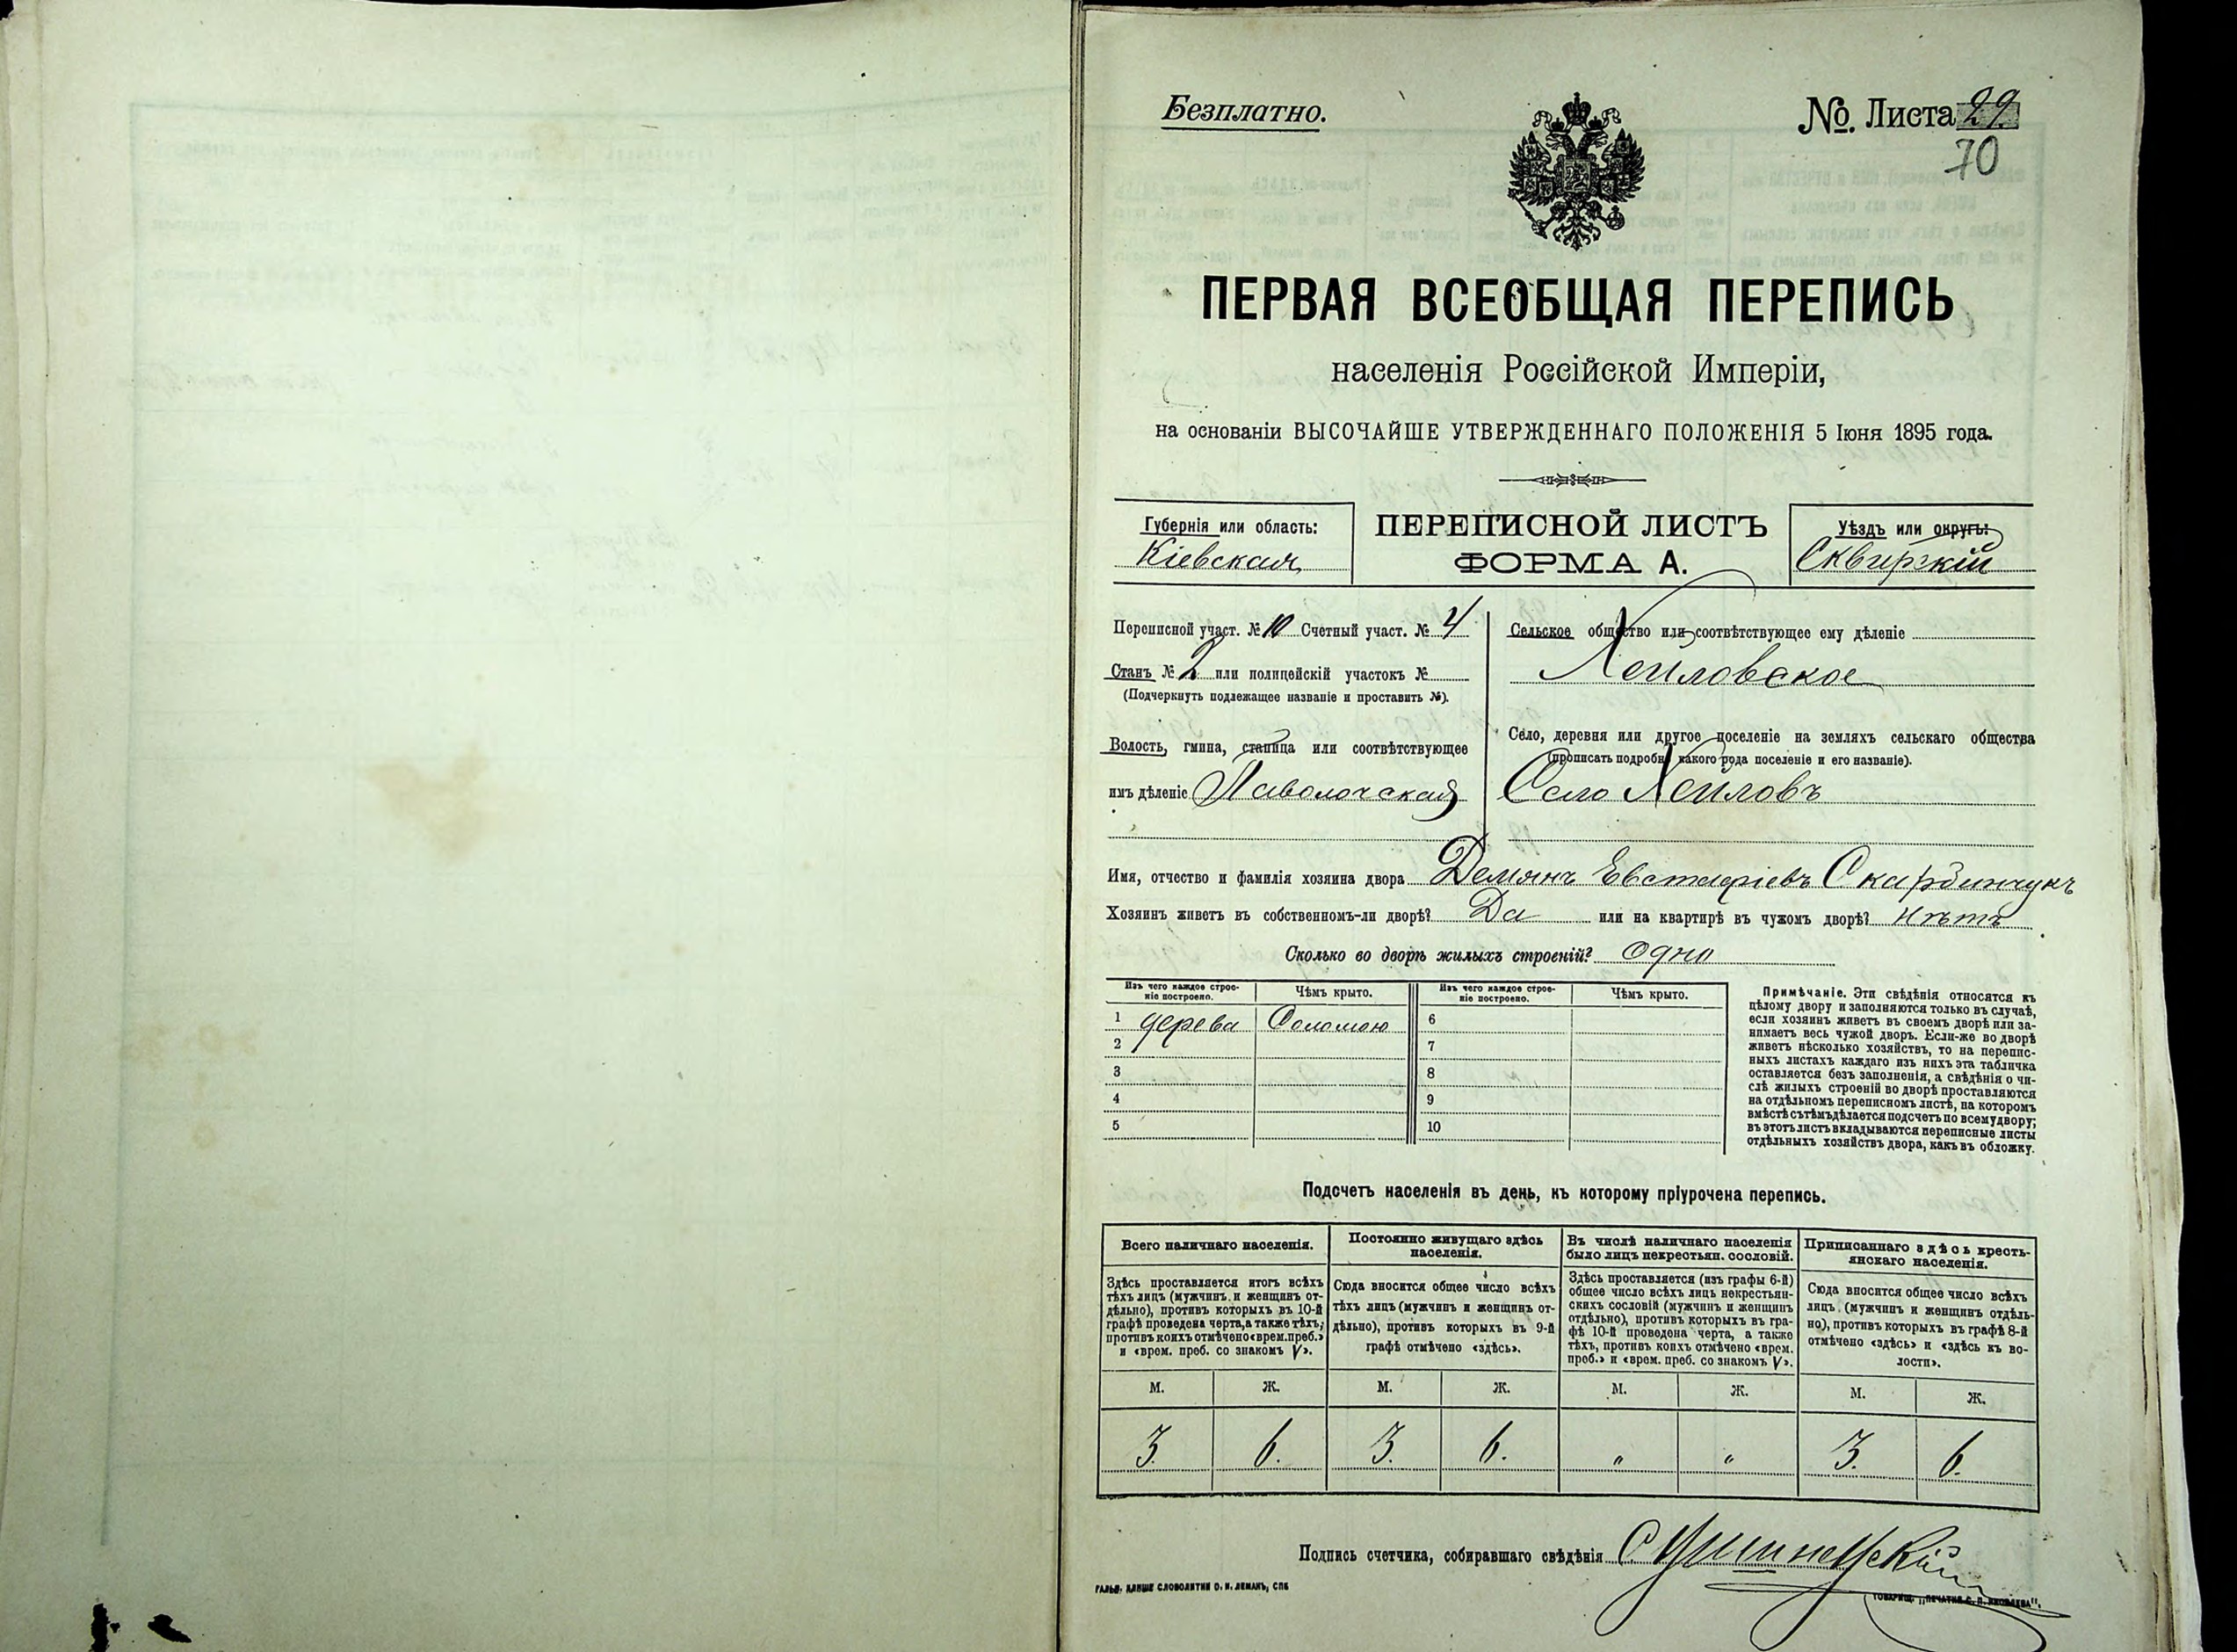 Безплатно.
№ Листа 29.
70
ПЕРВАЯ ВСЕОБЩАЯ ПЕРЕПИСЬ
населенія Россійской Имперіи,
на основаніи ВЫСОЧАЙШЕ УТВЕРЖДЕННАГО ПОЛОЖЕНІЯ 5 Іюня 1895 года.
Губернія или область:
Кіевская
ПЕРЕПИСНОЙ ЛИСТЪ
ФОРМА А.
Уѣздъ или округъ:
Сквирскій
Переписной участ. № 10 Счетный участ. № 4
Станъ № 2 или полицейскій участокъ №
(Подчеркнуть подлежащее названіе и проставить №).
Волость, гмина, станица или соотвѣтствующее
имъ дѣленіе Паволочская
Сельское общество или соотвѣтствующее ему дѣленіе
Хейловское
Село, деревня или другое поселеніе на земляхъ сельскаго общества
(прописать подробно какого рода поселеніе и его названіе).
Село Хейловъ
Имя, отчество и фамилія хозяина двора Демянъ Евстафіевъ Скарбинчукъ
Хозяинъ живетъ въ собственномъ-ли дворѣ? Да или на квартирѣ въ чужомъ дворѣ? нѣтъ
Сколько во дворѣ жилыхъ строеній? одно
Изъ чего каждое строе-
ніе построено.
Чѣмъ крыто.
Изъ чего каждое строе-
ніе построено.
Чѣмъ крыто.
1 дерева Соломою 6
2 7
3 8
4 9
5 10
Примѣчаніе. Эти свѣдѣнія относятся къ
цѣлому двору и заполняются только въ случаѣ,
если хозяинъ живетъ въ своемъ дворѣ или за-
нимаетъ весь чужой дворъ. Если-же во дворѣ
живетъ нѣсколько хозяйствъ, то на перепис-
ныхъ листахъ каждаго изъ нихъ эта табличка
оставляется безъ заполненія, а свѣдѣнія о чи-
слѣ жилыхъ строеній во дворѣ проставляются
на отдѣльномъ переписномъ листѣ, на которомъ
вмѣстѣ съ тѣмъ дѣлается подсчетъ по всему двору;
въ этотъ листъ вкладываются переписные листы
отдѣльныхъ хозяйствъ двора, какъ въ обложку.
Подсчетъ населенія въ день, къ которому пріурочена перепись.
Всего наличнаго населенія.
Здѣсь проставляется итогъ всѣхъ
тѣхъ лицъ (мужчинъ и женщинъ от-
дѣльно), противъ которыхъ въ 10-й
графѣ проведена черта, а также тѣхъ,
противъ коихъ отмѣчено «врем. преб.»
и «врем. преб. со знакомъ V».
Постоянно живущаго здѣсь
населенія.
Сюда вносится общее число всѣхъ
тѣхъ лицъ (мужчинъ и женщинъ от-
дѣльно), противъ которыхъ въ 9-й
графѣ отмѣчено «здѣсь».
Въ числѣ наличнаго населенія
было лицъ некрестьян. сословій.
Здѣсь проставляется (изъ графы 6-й)
общее число всѣхъ лицъ некрестьян-
скихъ сословій (мужчинъ и женщинъ
отдѣльно), противъ которыхъ въ гра-
фѣ 10-й проведена черта, а также
тѣхъ, противъ коихъ отмѣчено «врем.
преб.» и «врем. преб. со знакомъ V».
Приписаннаго здѣсь кресть-
янскаго населенія.
Сюда вносится общее число всѣхъ
лицъ (мужчинъ и женщинъ отдѣль-
но), противъ которыхъ въ графѣ 8-й
отмѣчено «здѣсь» и «здѣсь къ во-
лости».
М. Ж. М. Ж. М. Ж. М. Ж.
3. 6. 3. 6. " " 3. 6.
Подпись счетчика, собиравшаго свѣдѣнія
ГАЛЬВ. КЛИШЕ СЛОВОЛИТНИ О. И. ЛЕМАНЪ, СПБ
ТОВАРИЩ. „ПЕЧАТНЯ С. П. ЯКОВЛЕВА".